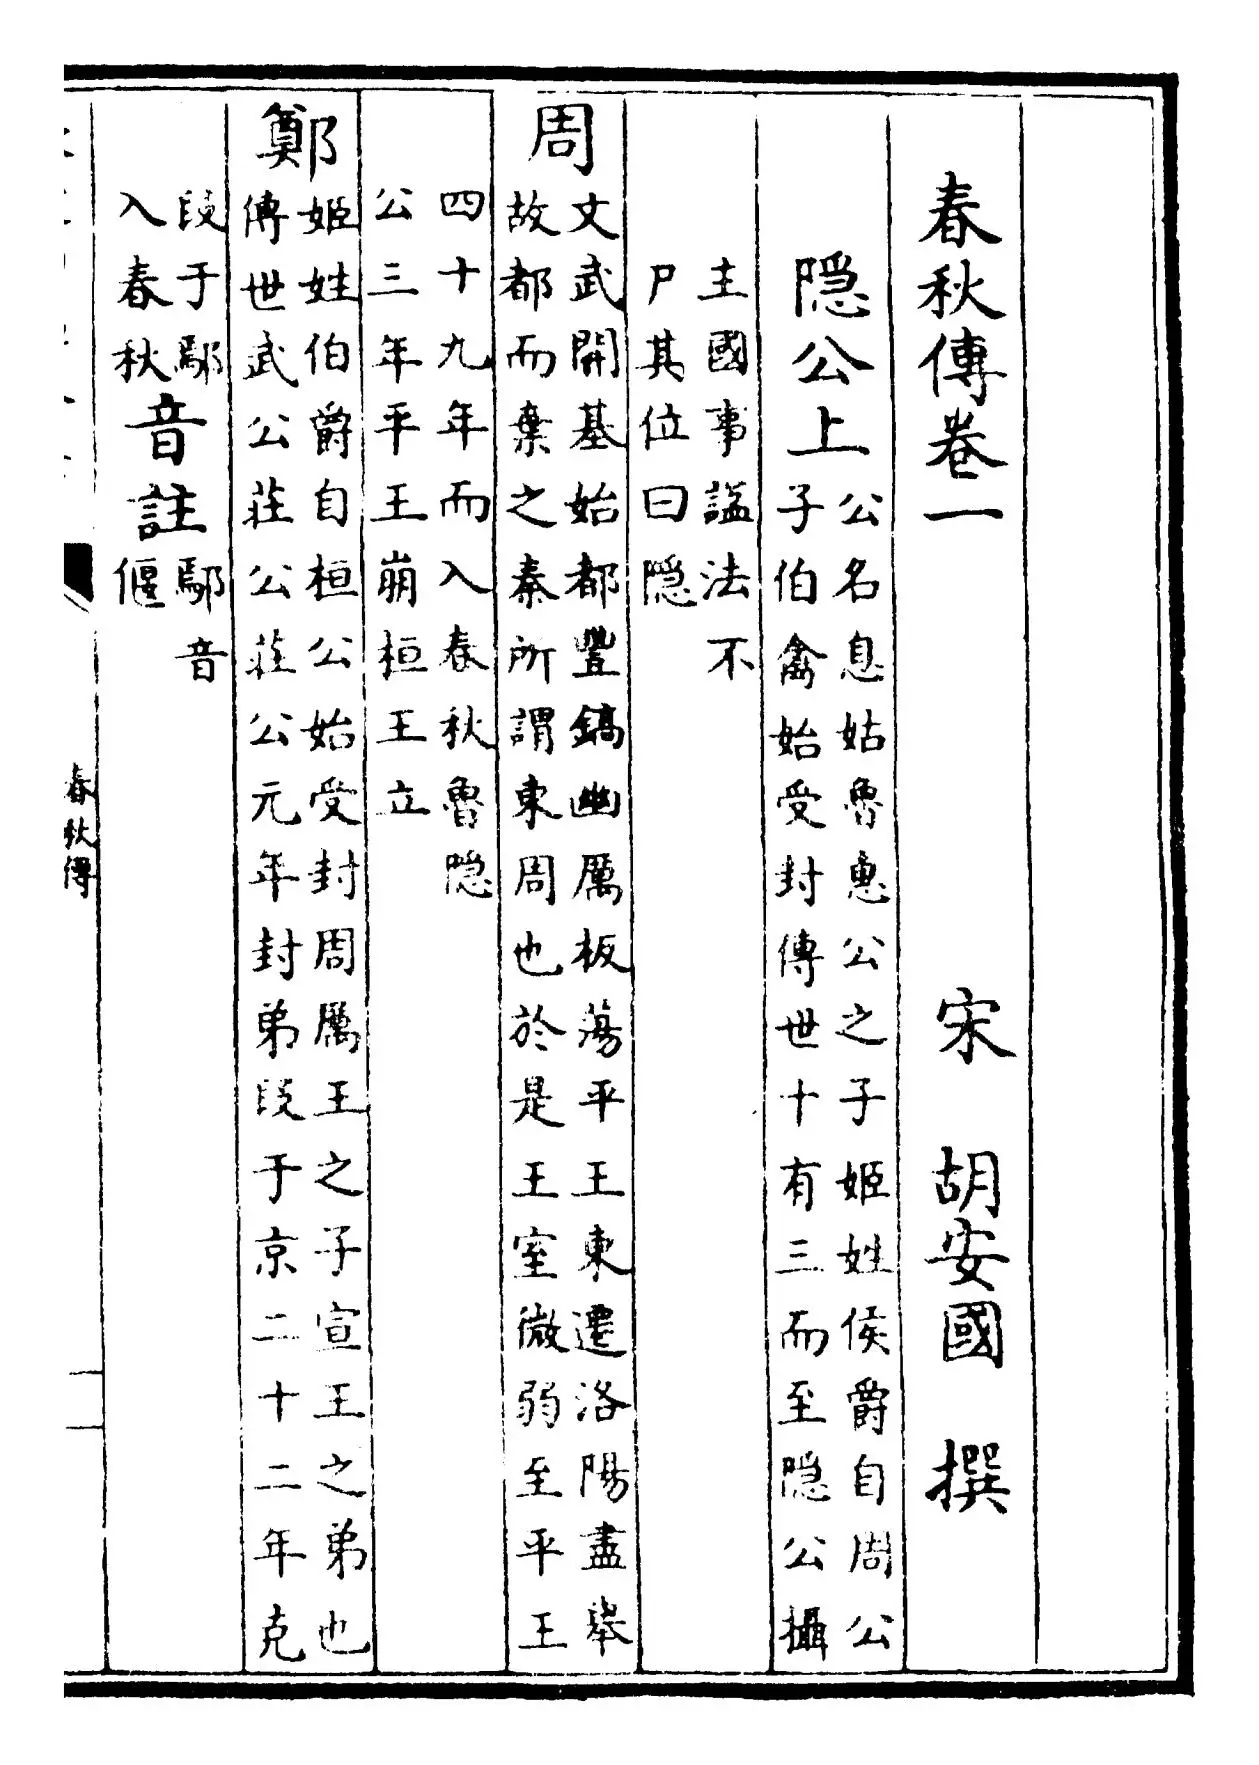 春秋傳卷一
宋 胡安國 撰
隠公上
公名息姑魯惠公之子姬姓侯爵自周公
子伯禽始受封傳世十有三而至隠公攝
主國事諡法不
尸其位曰隠
周
文武開基始都豐鎬幽厲板蕩平王東遷洛陽盡舉
故都而棄之秦所謂東周也於是王室微弱至平王
四十九年而入春秋魯隠
公三年平王崩桓王立
鄭
姬姓伯爵自桓公始受封周厲王之子宣王之弟也
傳世武公莊公莊公元年封弟段于京二十二年克
段于鄢
入春秋
音註
鄢音
偃
春秋傳